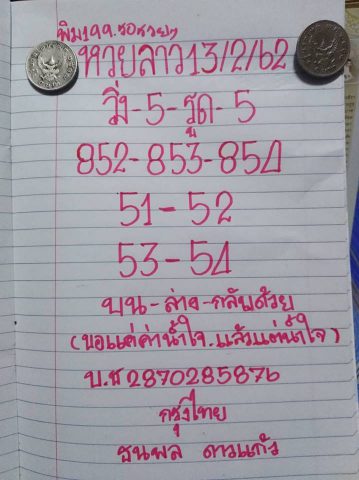 พิม199.ขอสวยๆ
หวยลาว13/2/62
วิ่ง-5-รูด-5
852-853-854
51-52
53-54
บน-ล่าง-กลับด้วย
(ขอแค่ค่าน้ำใจ.แล้วแต่น้ำใจ)
บ.ช2870285876
กรุงไทย
ธนพล ดาวแก้ว